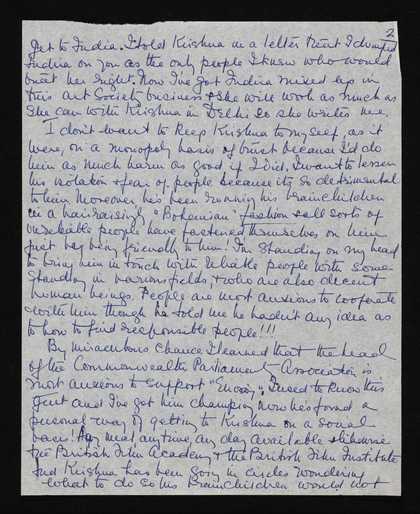 2
get to India. I told Krishna in a letter that I dumped
Indira on you as the only people I knew who would
treat her right. Now I've got Indira mixed up in
this Art Society business & she will work as much as
she can with Krishna in Delhi so she writes me.
I don't want to keep Krishna to myself, as it
were, on a monopoly basis of trust because I'd do
him as much harm as good if I did. I want to lessen
his isolation & fear of people because its so detrimental
to him. Moreover, his been running his brainchildren
in a hair-raising "Bohemian" fashion & all sorts of
unreliable people have fastened themselves on him
just by being friendly to him! I'm standing on my head
to bring him in touch with reliable people with some
standing in various fields, & who are also decent
human beings. People are most anxious to cooperate
with him though he told me he hadn't any idea as
to how to find responsible people!!!
By miraculous chance I learned that the head
of the Commonwealth Parliament Association is
most anxious to support I used to know this
gent and I've got him champion now he's found a
personal way of getting to Krishna on a social
basis! Any meal, anytime, any day available & likewise
the British Film Academy & the British Film Institute
And Krishna has been going in circles wondering
what to do so his Brainchildren would not